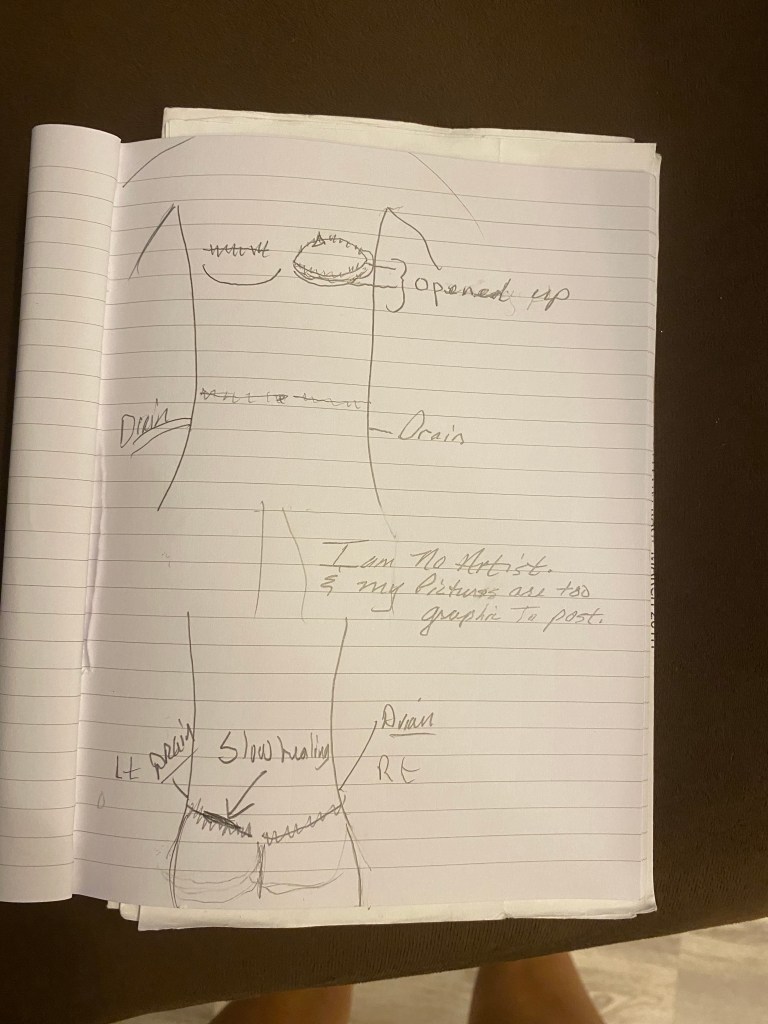 Opened up
Drain
Drain
I am No Artist.
& my Pictures are too
graphic To post.
Drain
Slow healing
Lt Drain
Rt